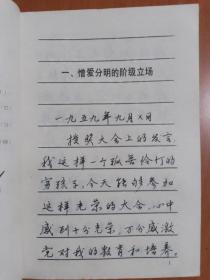 一、憎爱分明的阶级立场
一九五九年九月×日
授奖大会上的发言。
我这样一个孤苦伶仃的
穷孩子，今天能够参加
这样光荣的大会，心中
感到十分光荣，万分感激
党对我的教育和培养。
1